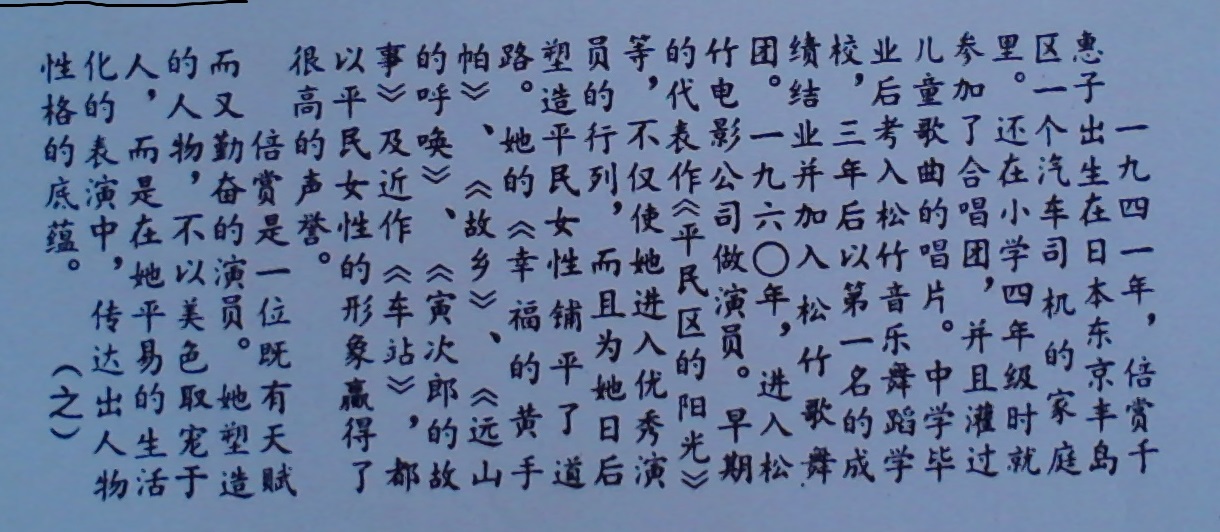 一九四一年，倍赏千
惠子出生在日本东京丰岛
区一个汽车司机的家庭
里。还在小学四年级时就
参加了合唱团，并且灌过
儿童歌曲的唱片。中学毕
业后考入松竹音乐舞蹈学
校，三年后以第一名的成
绩结业并加入松竹歌舞
团。一九六〇年，进入松
竹电影公司做演员。早期
的代表作《平民区的阳光》
等，不仅使她进入优秀演
员的行列，而且为她日后
塑造平民女性铺平了道
路。她的《幸福的黄手
帕》、《故乡》、《远山
的呼唤》、《寅次郎的故
事》及近作《车站》，都
以平民女性的形象赢得了
很高的声誉。
倍赏是一位既有天赋
而又勤奋的演员。她塑造
的人物，不以美色取宠于
人，而是在她平易的生活
化的表演中，传达出人物
性格的底蕴。　（之）